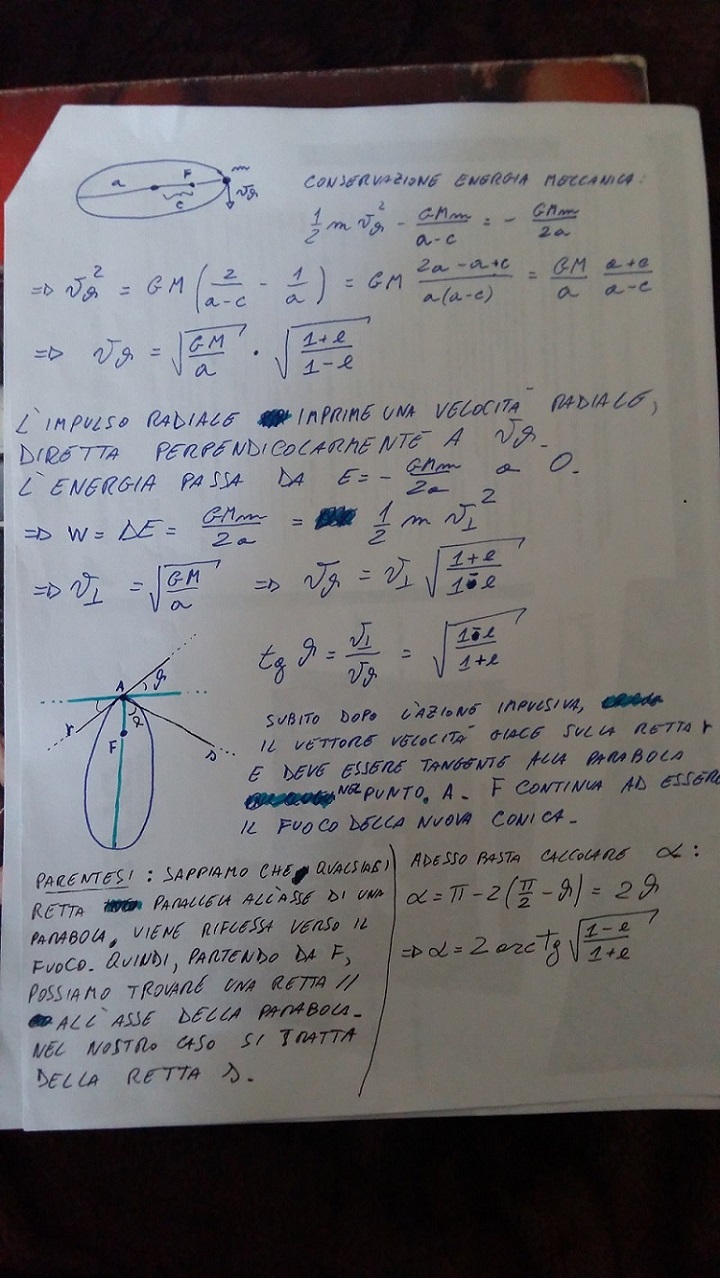 a F m
c
vϑ
CONSERVAZIONE ENERGIA MECCANICA:
1/2 m vϑ² - GMm/(a-c) = - GMm/2a
=> vϑ² = GM (2/(a-c) - 1/a) = GM (2a-a+c)/(a(a-c)) = GM/a (a+c)/(a-c)
=> vϑ = √(GM/a) · √((1+e)/(1-e))
L'IMPULSO RADIALE IMPRIME UNA VELOCITÀ RADIALE,
DIRETTA PERPENDICOLARMENTE A vϑ.
L'ENERGIA PASSA DA E = - GMm/2a a 0.
=> W = ΔE = GMm/2a = 1/2 m v⊥²
=> v⊥ = √(GM/a) => vϑ = v⊥ √((1+e)/(1-e))
tg ϑ = v⊥/vϑ = √((1-e)/(1+e))
A ϑ
r α s
F
SUBITO DOPO L'AZIONE IMPULSIVA,
IL VETTORE VELOCITÀ GIACE SULLA RETTA r
E DEVE ESSERE TANGENTE ALLA PARABOLA
NEL PUNTO A. F CONTINUA AD ESSERE
IL FUOCO DELLA NUOVA CONICA.
PARENTESI: SAPPIAMO CHE QUALSIASI
RETTA PARALLELA ALL'ASSE DI UNA
PARABOLA, VIENE RIFLESSA VERSO IL
FUOCO. QUINDI, PARTENDO DA F,
POSSIAMO TROVARE UNA RETTA //
ALL'ASSE DELLA PARABOLA.
NEL NOSTRO CASO SI TRATTA
DELLA RETTA s.
ADESSO BASTA CALCOLARE α:
α = π - 2(π/2 - ϑ) = 2ϑ
=> α = 2 arctg √((1-e)/(1+e))